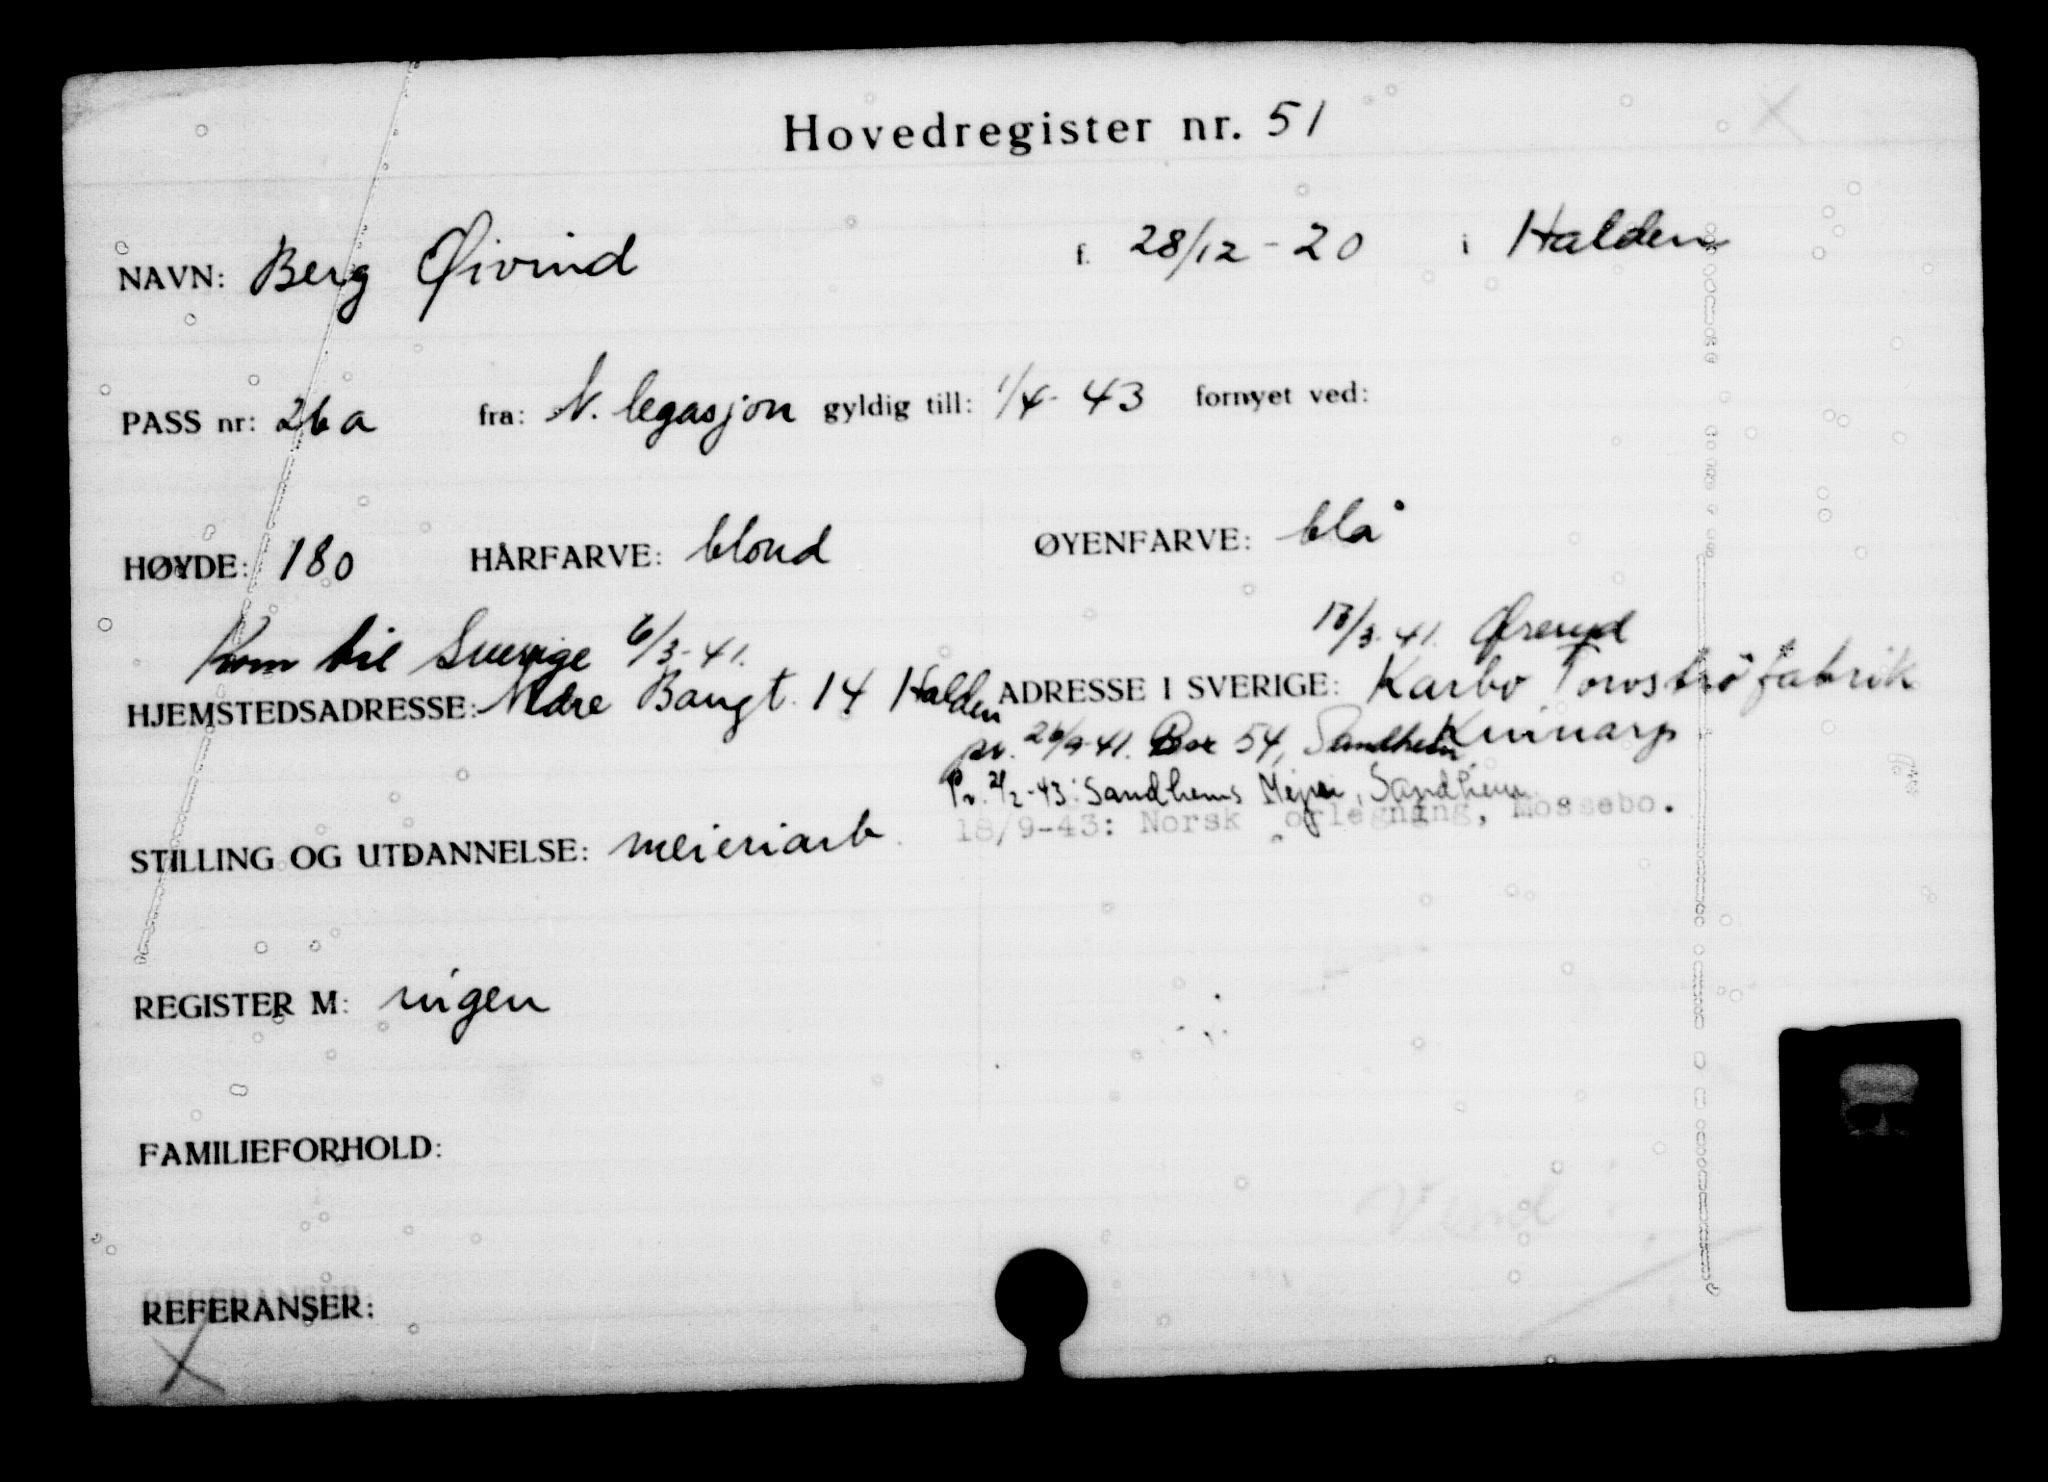 Hovedregister nr. 51
NAVN: Berg Øivind f. 28/12-20 i Halden
PASS nr: 26a fra: N. legasjon gyldig till: 1/4-43 fornyet ved:
HØYDE: 180 HÅRFARVE: blond ØYENFARVE: blå
Kom til Sverige 6/3-41. /3-41.
HJEMSTEDSADRESSE: Ndre Bangt. 14 Halden ADRESSE I SVERIGE: Karbo Torvströfabrik
Kinnarp
pr. 26/9-41. Box 54, Sandhem
Pr. 2/2-43: Sandhems Mejeri, Sandhem
18/9-43: Norsk orlegning, Mossebo.
STILLING OG UTDANNELSE: meieriarb.
REGISTER M: ingen
FAMILIEFORHOLD:
Vend!
REFERANSER: